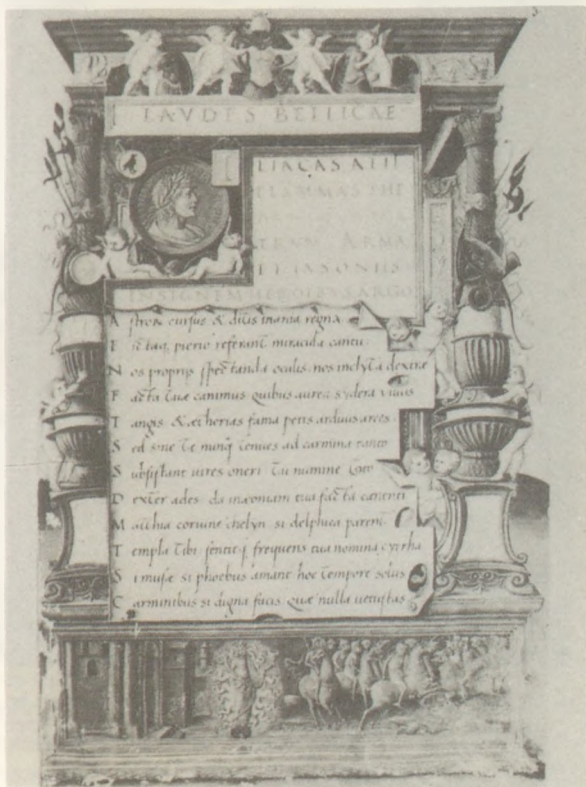 LAVDES BELLICAE
ILIACAS ALII
FLAMMAS THE
TRVM ARMA
ET IASONIIS
INSIGNEM HEROIBVS ARGO
Astrorum cursus & ditis inania regna
Pierio referant miracula cantu
Nos proprijs spectanda oculis nos inclyta dextræ
Facta tuæ canimus quibus aurea sydera viuus
Tangis & ætherias fama petis arduus arces
Sed sine te nunq̃ tenues ad carmina tanto
Subsistant uires oneri tu numine toto
Dexter ades da mæoniam tua facta canenti
Matthia coruine chelyn si delphica parent
Templa tibi sentitq; frequens tua nomina cyrrha
Si musæ si phoebus amant hoc tempore solus
Carminibus si digna facis quæ nulla uetustas